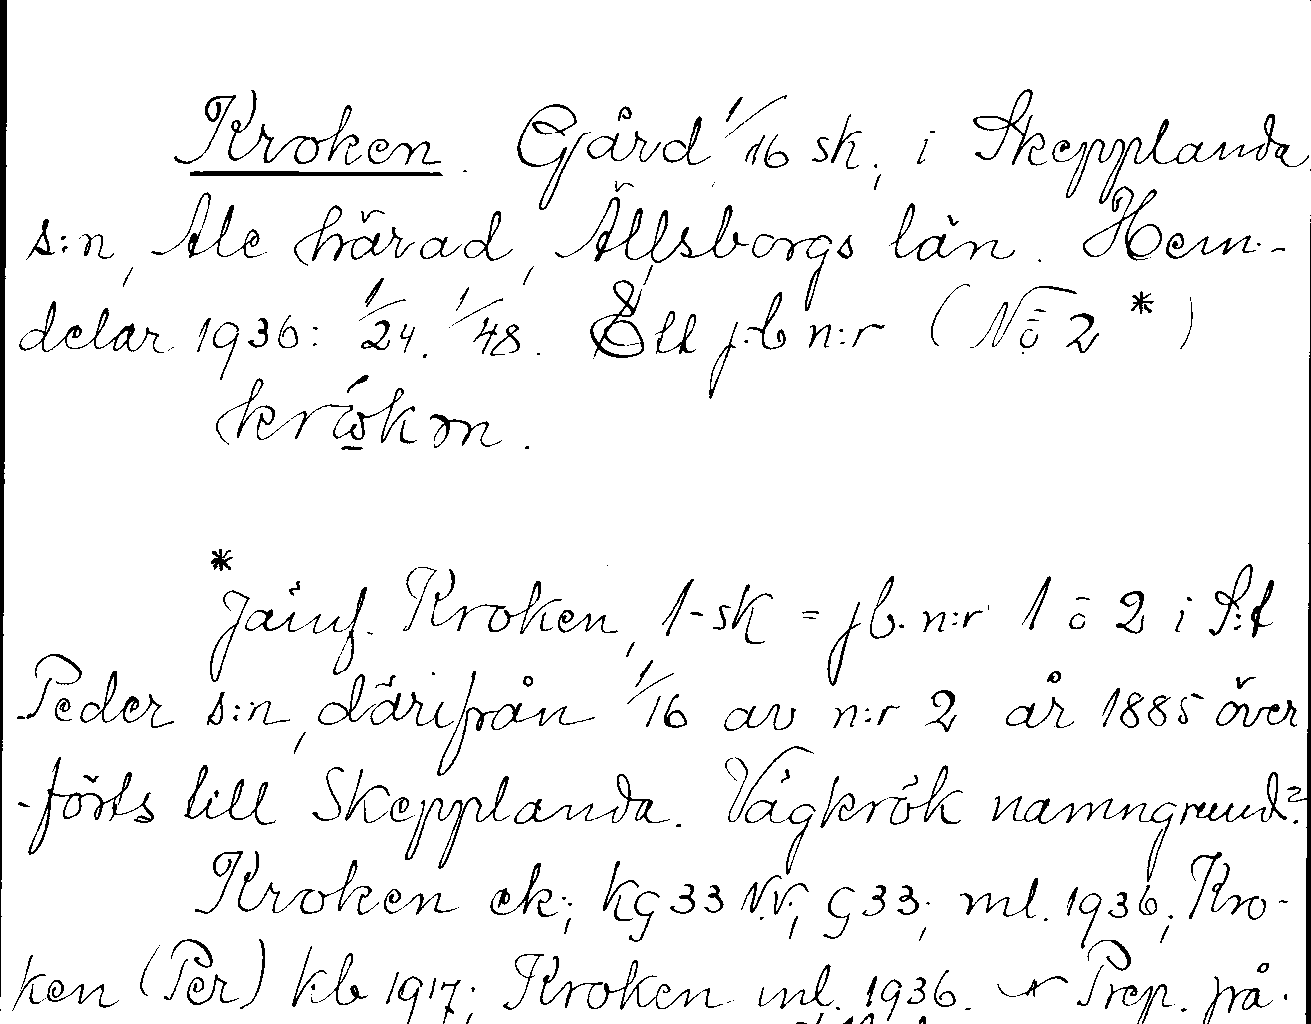 Kroken. Gård 1/16 sk; i Skepplanda
s:n, Ale härad, Älvsborgs län. Hem-
delar 1936: 1/24. 1/48. Ett j:b n:r (No 2 *)
* Jämf. Kroken, 1-sk = jb. n:r 1 o 2 i S:t
Peder s:n, därifrån 1/16 av n:r 2 år 1885 över
-förts till Skepplanda. Vägkrök namngrund?
Kroken ek; Kg 33 N.V; G33; ml. 1936; Kro-
ken (Per) kb 1917; Kroken ml. 1936. Prep. på.